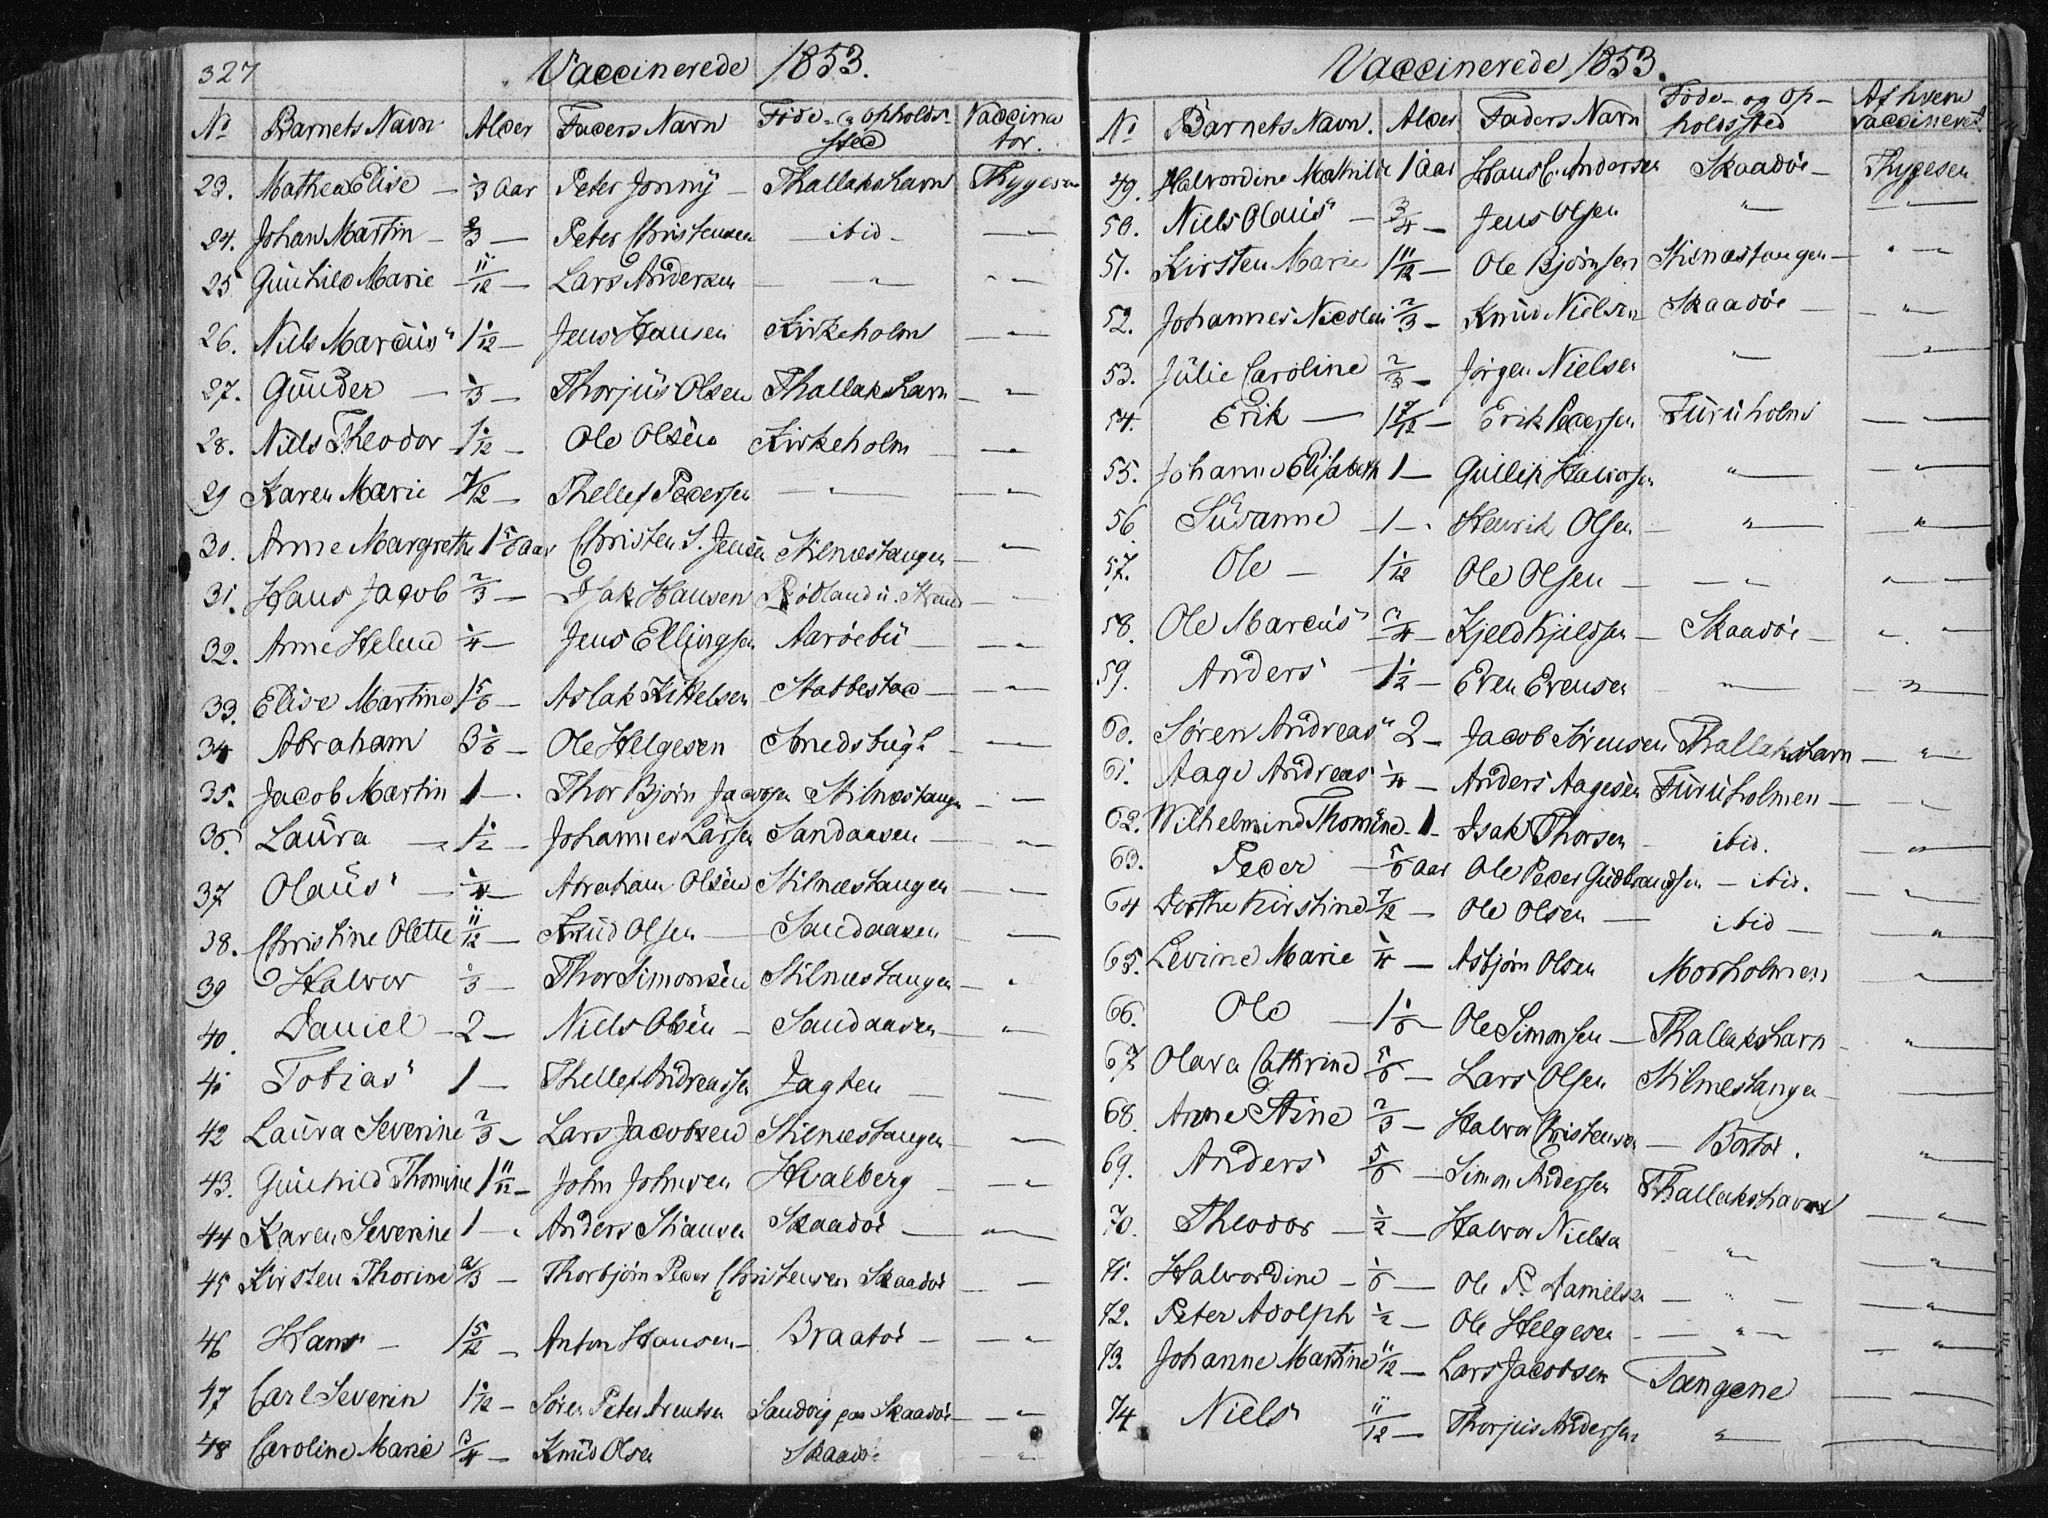 327 Vaccinerede 1853.
No Barnets Navn Alder Faders Navn Föde- og Opholds-sted Vaccinator.
23. Mathea Elise — 1/3 Aar Peter Jonny — Thallakshavn Thygesen
24. Johan Martin — 2/3 — Peter Christensen — ibid — — " —
25 Gunhild Marie — 11/12 — Lars Andersen — " — — " —
26. Niels Marcus 1 1/12 — Jens Hansen Kirkeholm — " —
27. Gunder — 1/3 — Thorjus Olsen Thallakshavn — " —
28. Niels Theodor 1 1/12 — Ole Olsen Kirkeholm — " —
29 Karen Marie 7/12 — Thellef Pedersen — " — — " —
30. Anne Margrethe 1 5/6 Aar Christen S. Jensen Stilnæstangen — " —
31. Hans Jacob 2/3 — Isak Hansen Rödland u. Strand — " —
32. Anne Helene 1/4 — Jens Ellingsen Aaröebu — — " —
33. Elise Martine 1 5/6 — Aslak Kittelsen Stabbestad — — " —
34 Abraham 3 1/6 — Ole Helgesen Smedsbugt — — " —
35. Jacob Martin 1 — Thor Björn Jacobsen Stilnæstangen — " —
36. Laura — 1 1/2 — Johannes Larsen Sandaasen — — " —
37 Olaus — 1/4 — Abraham Olsen Stilnæstangen — " —
38. Christine Olette 11/12 — Knud Olsen — Sandaasen — " —
39 Halvor 1/3 — Thor Simonsen Stilnæstangen — " —
40. Daniel — 2 — Niels Olsen — Sandaasen — " —
41 Tobias 1 — Thellef Andreassen Jagten — — " —
42 Laura Severine 2/3 — Lars Jacobsen Stilnæstangen — " —
43. Gunhild Thomine 1 11/12 — John Johnsen Hvalberg — — " —
44 Karen Severine 1 — Anders Hansen Skaadöe — — " —
45 Kirsten Thorine 2/3 — Thorbjörn Peder Christensen Skaadöe —
46 Hans — 1 5/12 — Anton Hansen — Braatöe — — " —
47 Carl Severin 1 1/12 — Sören Peter Arentsen Sandvig paa Skaadöe — " —
48 Caroline Marie 3/4 — Knud Olsen Skaadöe — " —
Vaccinerede 1853.
No Barnets Navn. Alder Faders Navn Föde- og Opholdssted Af hvem vaccineret
49. Halvordine Mathilde 1 Aar Hans C. Andersen Skaadöe — Thygesen
50. Niels Olaus — 3/4 — Jens Olsen " — " —
51. Kirsten Marie 1 11/12 — Ole Björnsen Stilnæstangen — " —
52. Johannes Nicolai 2/3 — Knud Nielsen Skaadöe — — " —
53. Julie Caroline 2/3 — Jörgen Nielsen — " — — " —
54. Erik — 1 7/12 — Erik Pedersen Furuholm — " —
55. Johanne Elisabeth 1 — Gullik Halvorsen — " — — " —
56 Susanne — 1 — Henrik Olsen — " — — " —
57. Ole — 1 1/12 Ole Olsen — — " — " —
58. Ole Marcus 3/4 — Kjeld Kjeldsen — Skaadöe — " —
59. Anders — 1 1/2 — Even Evensen — " — — " —
60. Sören Andreas 2 — Jacob Sörensen Thallakshavn — " —
61. Aage Andreas 1/4 — Anders Aagesen Furuholmen — — " —
62. Wilhelmine Thomine — 1 — Isak Thorsen — ibid. — " —
63. Peder — 5/6 Aar Ole Peder Gudbrandsen — ibid. — " —
64 Dorthe Kirstine 7/12 — Ole Olsen — ibid — — " —
65. Levine Marie 1/4 — Asbjörn Olsen Morholmen — " —
66. Ole — 1 1/6 — Ole Simonsen — Thallakshavn — " —
67 Olava Cathrine 5/6 — Lars Olsen Stilnæstangen — —
68. Anne Stine 2/3 — Halvor Christensen — Bortöe. — " —
69. Anders 5/6 — Simon Andersen Thallakshavn — " —
70. Theodor — 1/2 — Halvor Nielsen — " — — " —
71. Halvordine — 1/6 — Ole P. Danielsen — " — — " —
72. Peter Adolph 1/2 — Ole Helgesen — " — — " —
73. Johanne Martine 11/12 — Lars Jacobsen Tangene — " —
74. Niels 11/12 — Thorjus Andersen " —